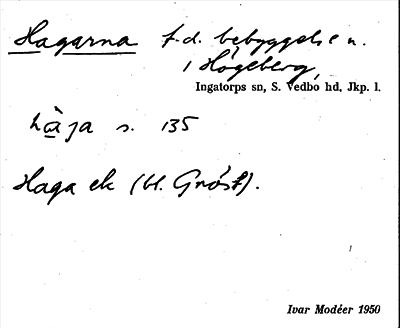 Hagarna f.d. bebyggelse u.
/ Högeberg,
Ingatorps sn, S. Vedbo hd, Jkp. l.
hàga s. 135
Haga ek (bl. Gnöst).
Ivar Modéer 1950